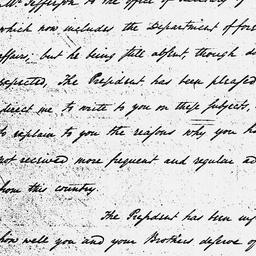 Mr Jefferson to the office of
which now includes the Department of fore
affairs, but he being still absent, though d
expected, The President has been pleased
direct me to write to you on these subjects,
to explain to you the reasons why you ha
not received more frequent and regular ad
from this country
The President has been
how well you and your Brothers deserve of